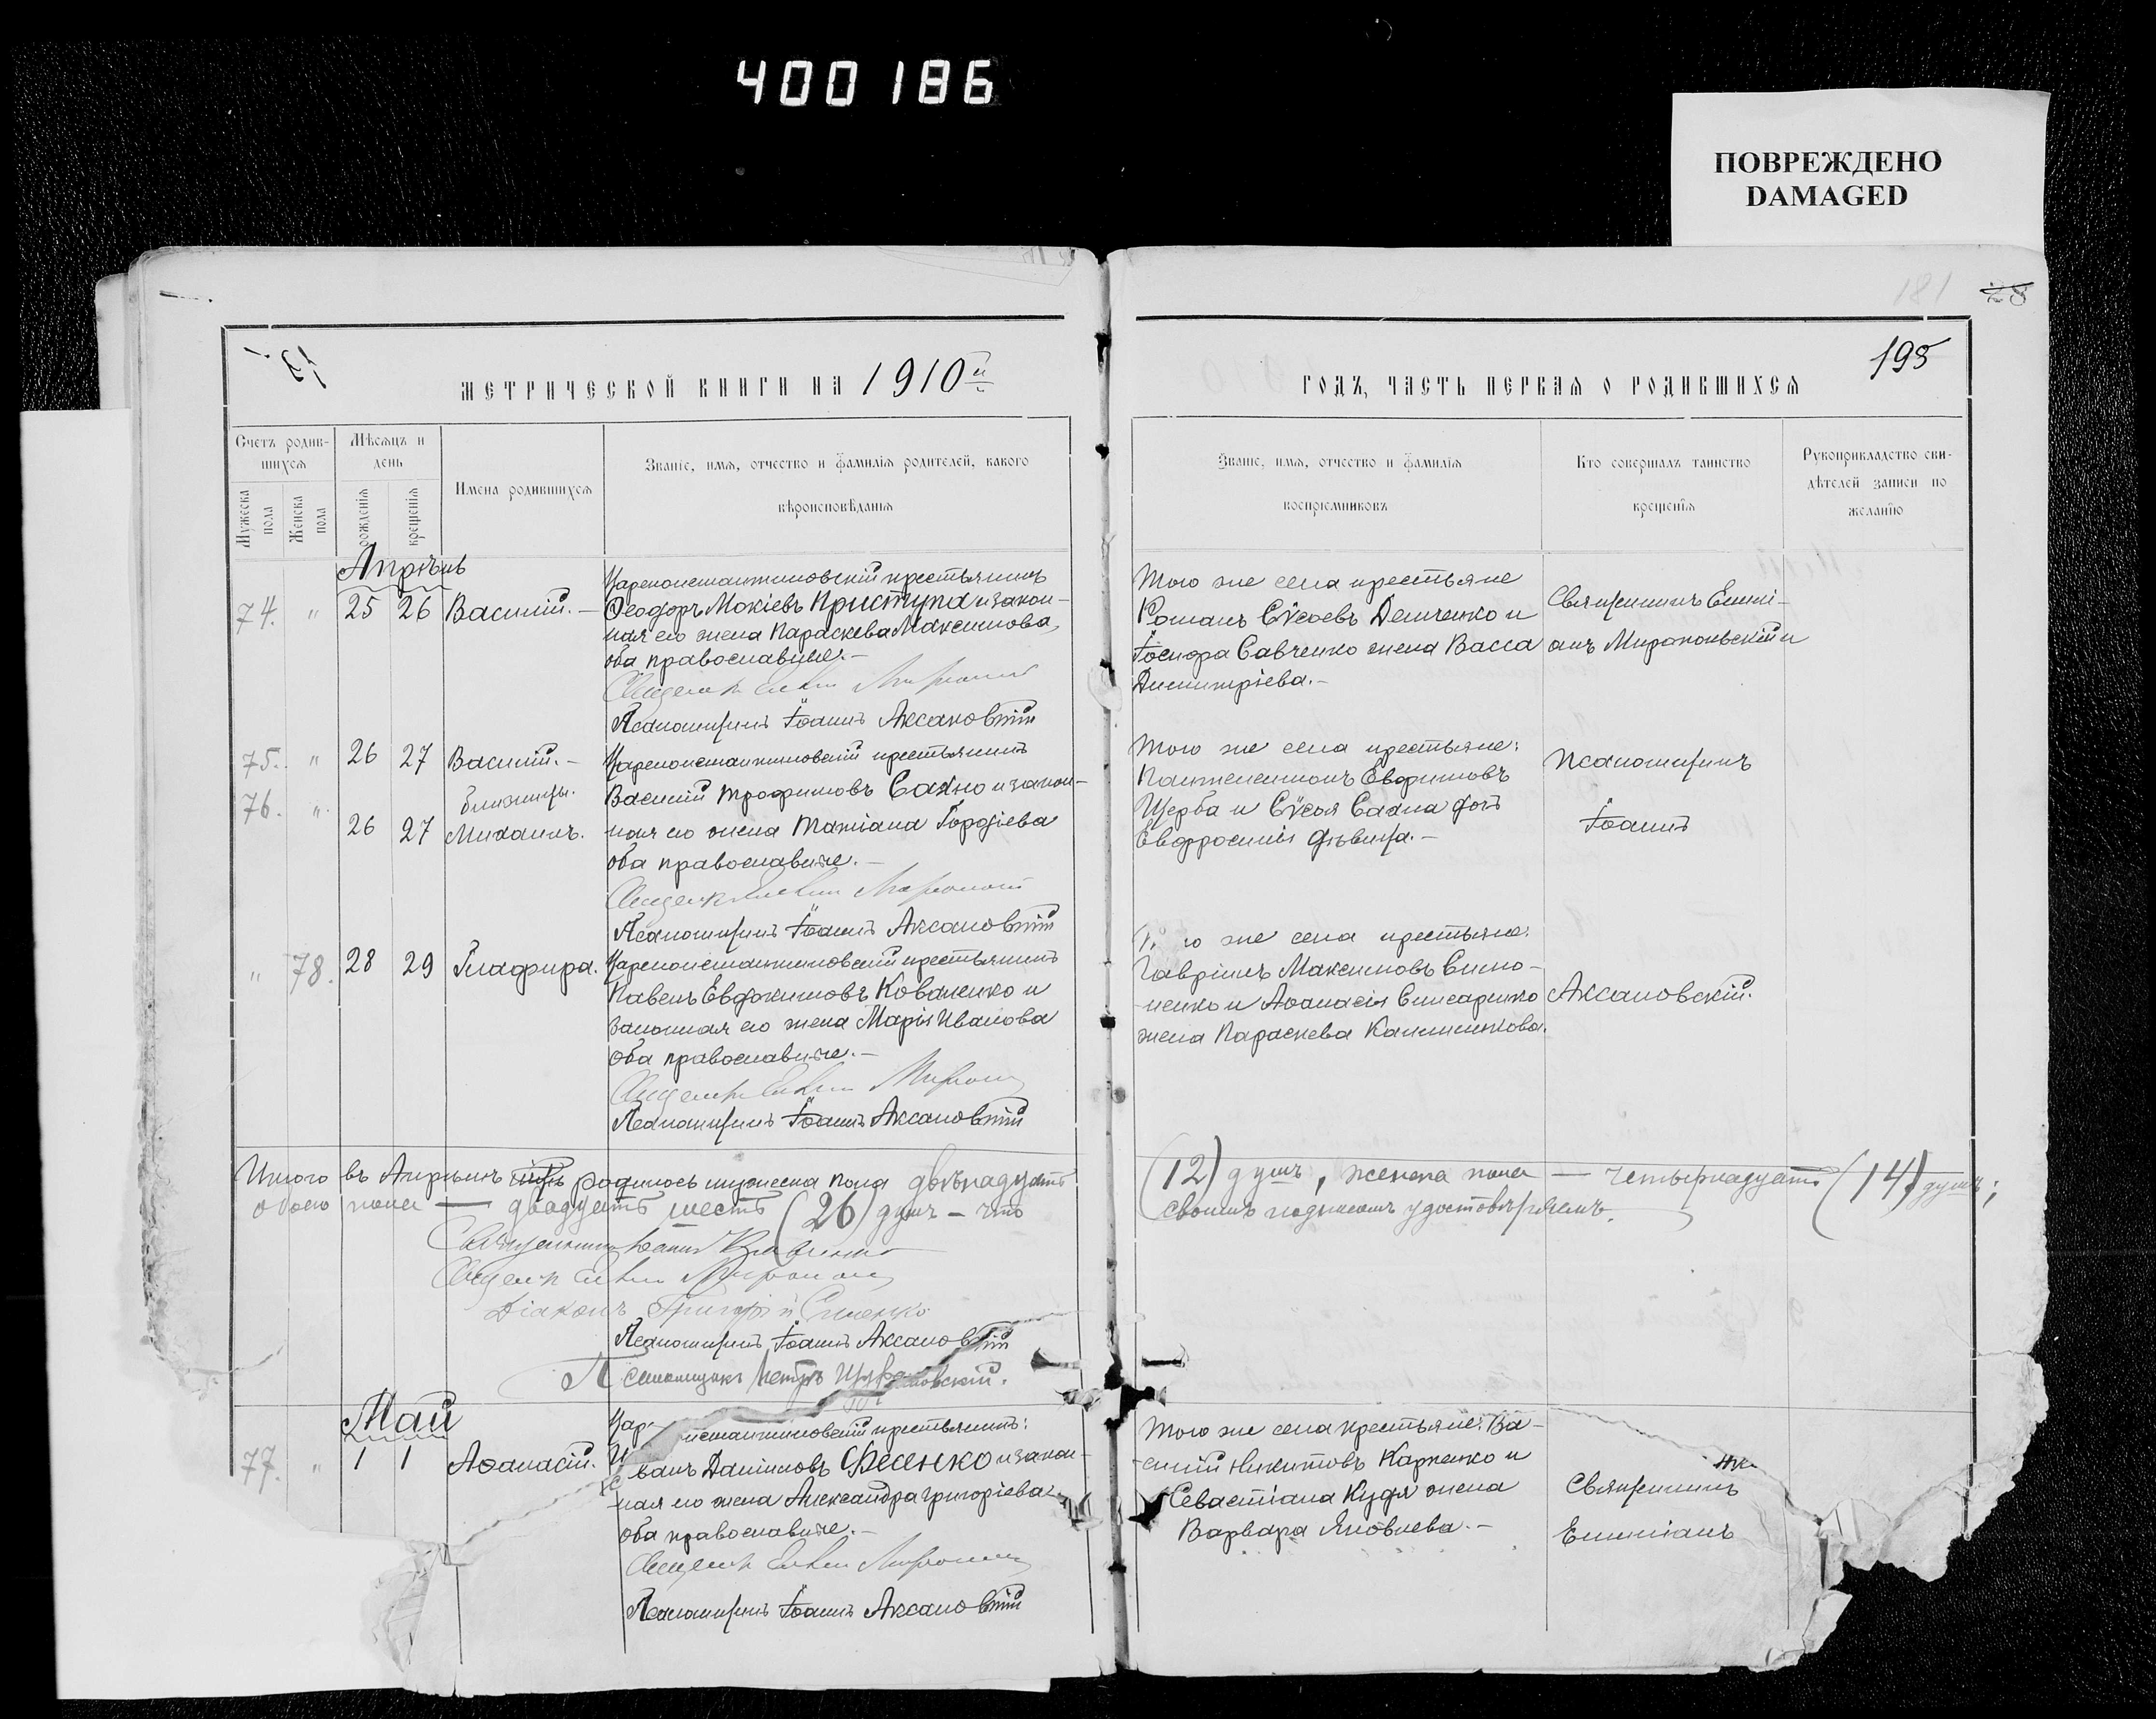 400186
ПОВРЕЖДЕНО
DAMAGED
181 28
195
МЕТРИЧЕСКОЙ КНИГИ НА 1910й
ГОДЪ, ЧАСТЬ ПЕРВАЯ О РОДИВШИХСЯ
Счетъ родив-
шихся
Мужеска пола
Женска пола
Мѣсяцъ и
день
рожденія
крещенія
Имена родившихся
Званіе, имя, отчество и фамилія родителей, какого
вѣроисповѣданія
Званіе, имя, отчество и фамилія
воспріемниковъ
Кто совершалъ таинство
крещенія
Рукоприкладство сви-
дѣтелей записи по
желанію
Апрѣль
74. " 25 26 Василій. —
Цареконстантиновскій крестьянинъ
Ѳеодоръ Мокіевъ Приступа и закон-
ная его жена Параскева Максимова,
оба православные. —
Псаломщикъ Іоаннъ Аксановскій
Того же села крестьяне
Романъ Сѵсоевъ Демченко и
Іосифа Савченко жена Васса
Димитріева. —
Священникъ Емилі-
анъ Миропольскій и
75. " 26 27 Василій. —
близнецы.
76. " 26 27 Михаилъ.
Цареконстантиновскій крестьянинъ
Василій Трофимовъ Сахно и закон-
ная его жена Татіана Гордіева
оба православные. —
Псаломщикъ Іоаннъ Аксановскій
Того же села крестьяне:
Пантелеимонъ Евфимовъ
Щерба и Сѵсоя Сахна дочь
Евфросинія дѣвица. —
Псаломщикъ
Іоаннъ
" 78. 28 29 Глафира.
Цареконстантиновскій крестьянинъ
Павелъ Евдокимовъ Коваленко и
законная его жена Марія Иванова
оба православные. —
Псаломщикъ Іоаннъ Аксановскій
же села крестьяне:
Гавріилъ Максимовъ Симо-
ненко и Аѳанасія Слисаренко
жена Параскева Калиникова.
Аксановскій.
Итого въ Апрѣлѣ родилось мужеска пола двѣнадцать
(12) душъ, женска пола — четырнадцать (14) душъ;
обоего пола — двадцать шесть (26) душъ — что
своимъ подписомъ удостовѣряемъ.
Діаконъ Григорій
Псаломщикъ Іоаннъ Аксановскій
Псаломщикъ Петръ
Май
77. " 1 1 Аѳанасій.
крестьянинъ:
Иванъ Даниловъ Фесенко и закон-
ная его жена Александра Григоріева
оба православные. —
Псаломщикъ Іоаннъ Аксановскій
Того же села крестьяне: Ва-
силій Никитовъ Карпенко и
Севастіана Кудя жена
Варвара Яковлева. —
Священникъ
Емиліанъ